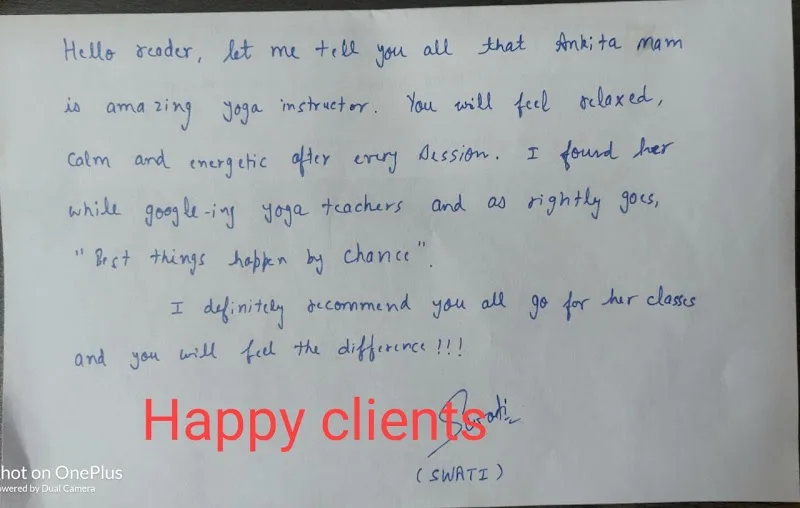 Hello reader, let me tell you all that Ankita mam
is amazing yoga instructor. You will feel relaxed,
calm and energetic after every session. I found her
while google-ing yoga teachers and as rightly goes,
"Best things happen by chance".
I definitely recommend you all go for her classes
and you will feel the difference!!!
Happy clients
Swati
(SWATI)
hot on OnePlus
owered by Dual Camera